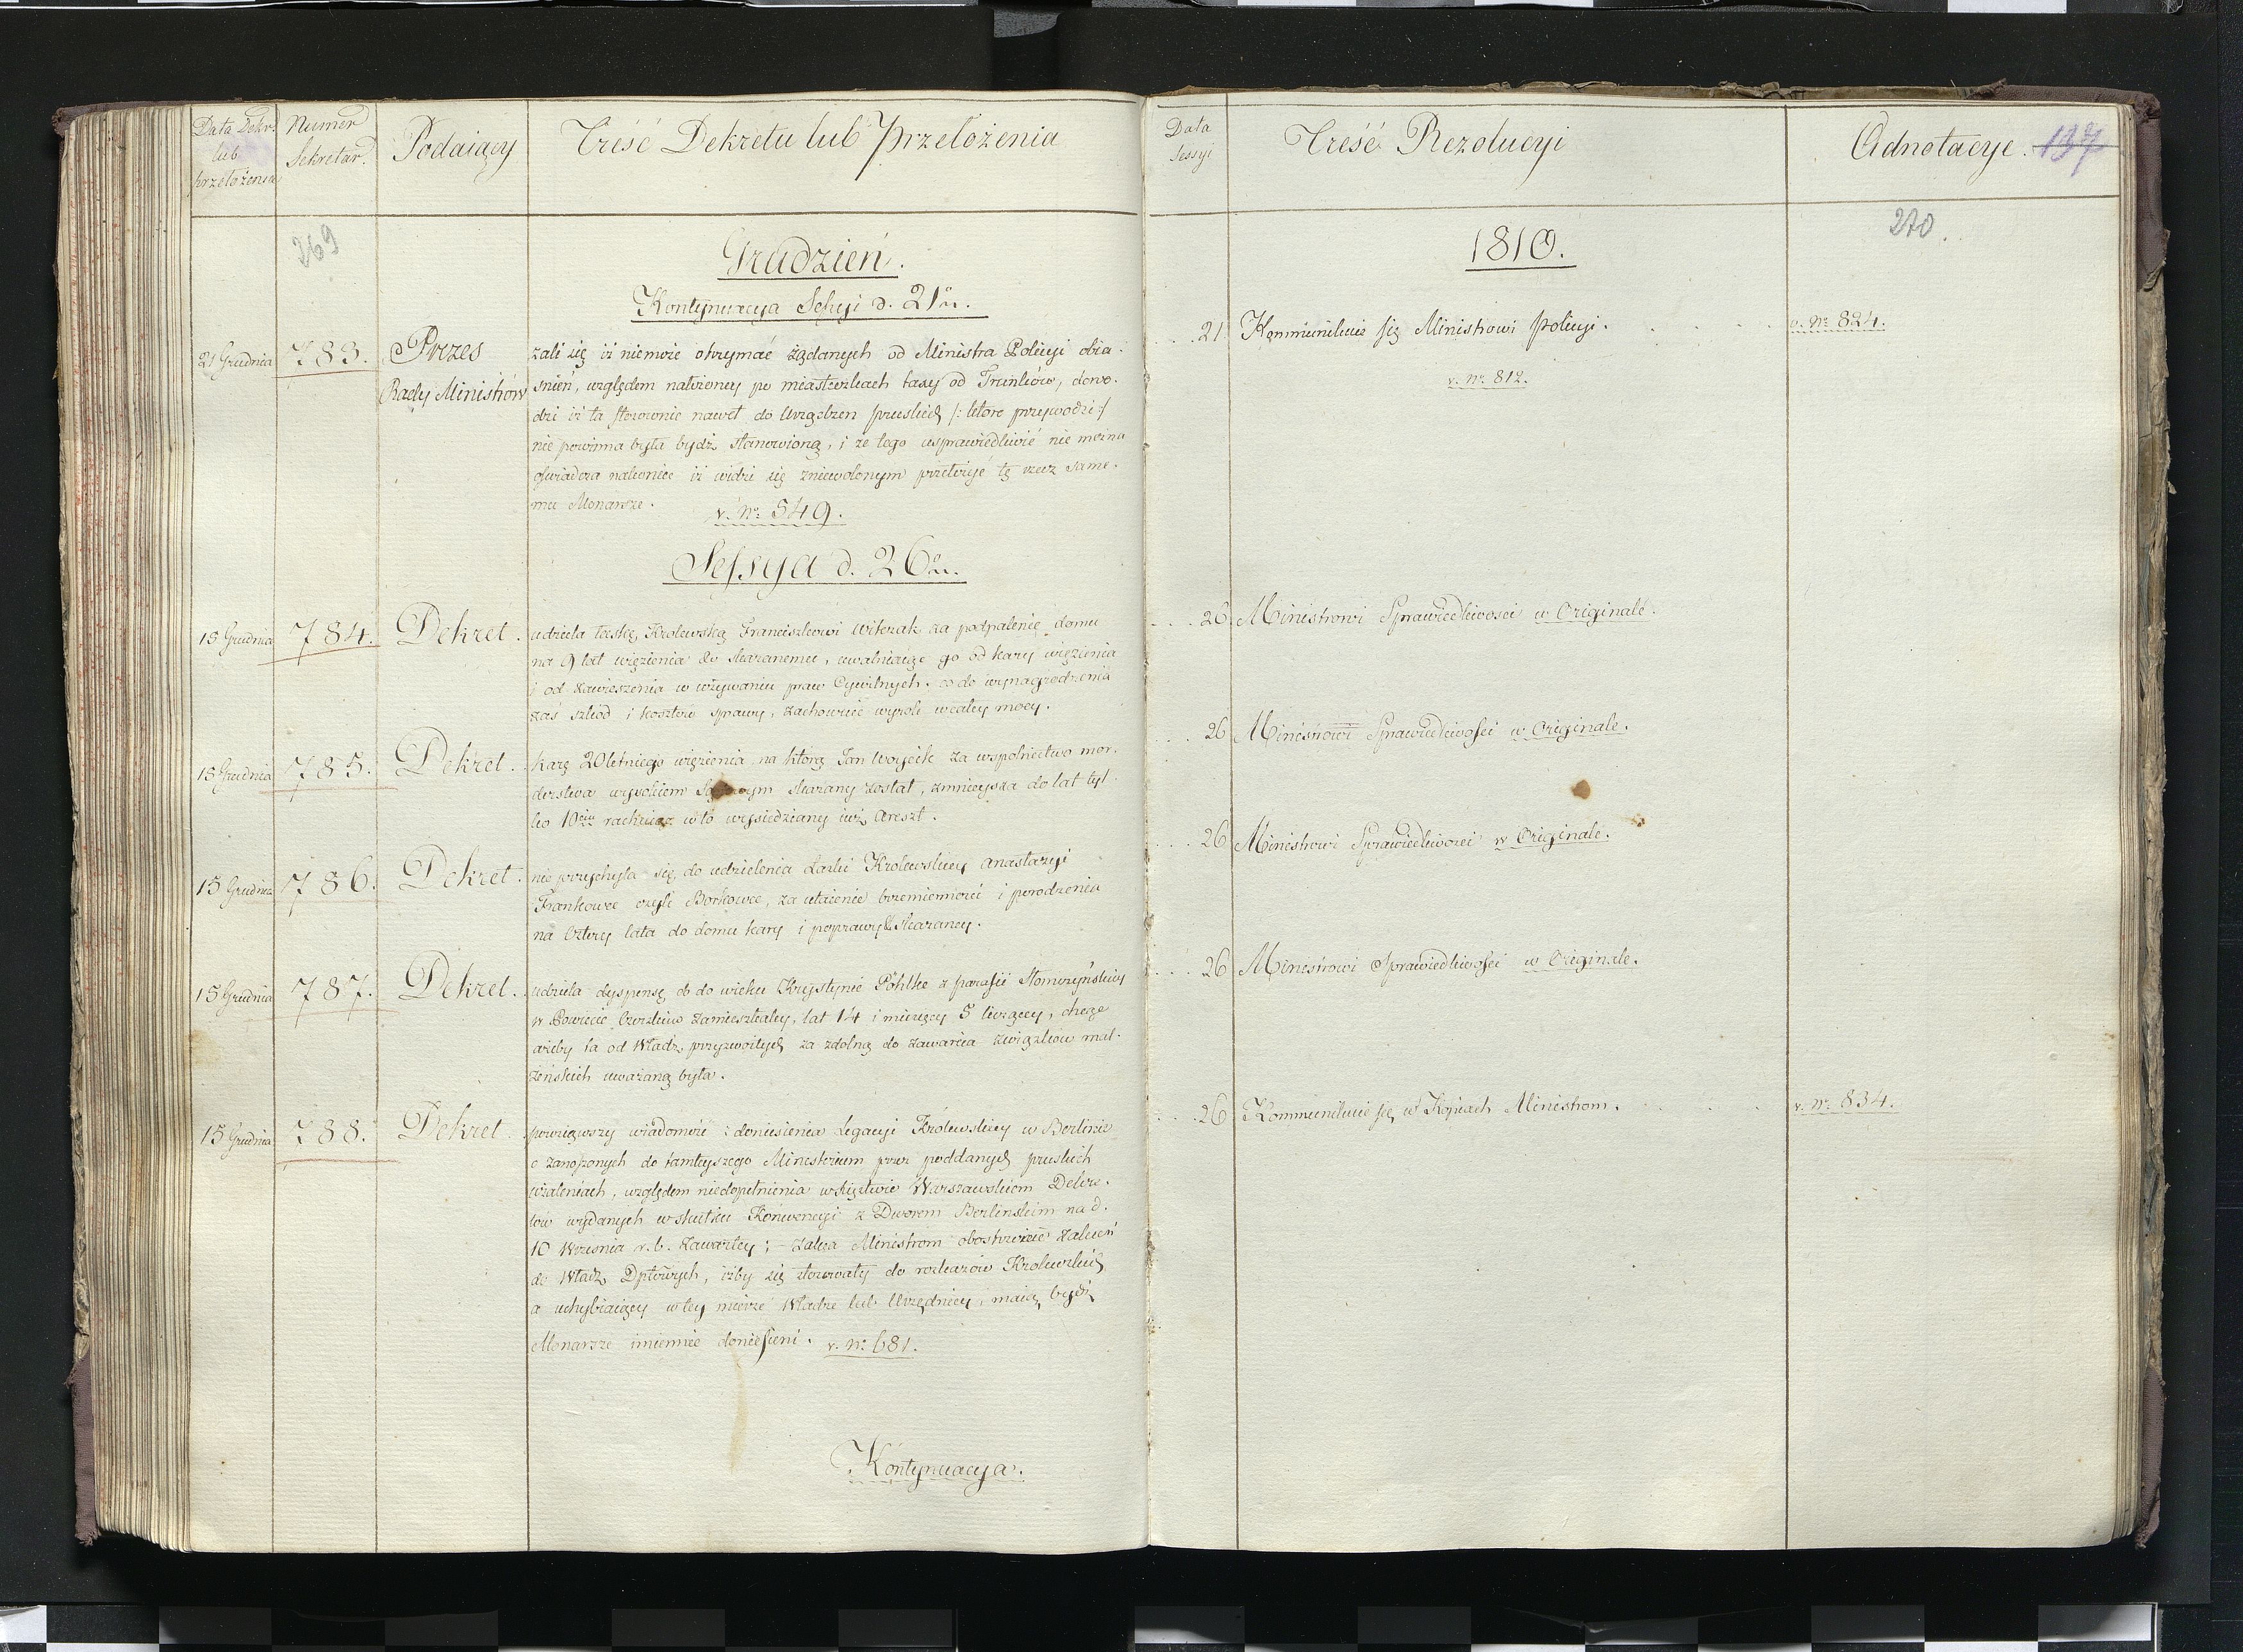 Data Dekr.
lub
przełożenia
Numer
Sekretar.
Podaiący
Treść Dekretu lub Przełożenia
269
Grudzień.
Kontynuacya Seßyi d. 21º
21 Grudnia
783.
Prezes
Rady Ministrów
żali się iż niemoże otrzymać żądanych od Ministra Policyi obia-
śnień, względem nałożoney po miasteczkach taxy od Trunków, dowo-
dzi iż ta stosownie nawet do Urządzen pruskich /: które przywodzi :/
nie powinna była bydź stanowioną, i że tego usprawiedliwić nie można
oswiadcza nakoniec iż widzi się zniewolonym przełożyć tę rzecz same-
mu Monarsze.
v. Nº 549.
Sessya d. 26º
15 Grudnia
784.
Dekret.
udziela łaskę Krolewską Franciszkowi Witczak za podpalenie domu
na 9 lat więzienia skazanemu, uwalniaiąc go od kary więzienia
i od zawieszenia w używaniu praw Cywilnych. co do wynagrodzenia
zaś szkod i kosztów sprawy, zachowuie wyrok w całey mocy.
15 Grudnia
785.
Dekret.
karę 20letniego więzienia na którą Jan Woycik za wspolnictwo mor-
derstwa wyrokiem Sądowym skazany został, zmnieysza do lat tyl-
ko 10ciu rachuiąc w to wysiedziany iuż Areszt.
15 Grudnia
786.
Dekret.
nie przychyla się do udzielenia Łaski Krolewskiey Anastazyi
Frankowce czyli Borkowce, za utaienie brzemienności i porodzenia
na cztery lata do domu kary i poprawy skazaney.
15 Grudnia
787.
Dekret.
udziela dyspensę co do wieku Krystynie Pohlke z parafii
w Powiecie zamieszkałey, lat 14 i miesięcy 5 liczącey, chcąc
ażeby ta od Władz przyzwoitych za zdolną do zawarcia związków mał-
żeńskich uważaną była.
15 Grudnia
788.
Dekret.
powziąwszy wiadomość z doniesienia Legacyi Królewskiey w Berlinie
o zanoszonych do tamteyszego Ministerium przez poddanych pruskich
użaleniach, względem niedopełnienia w Xięstwie Warszawskiem Dekre-
tów wydanych w skutku Konwencyi z Dworem Berlinskim na d.
10 Wrzesnia r. b. zawartey; - zaleca Ministrom obostrzenie zaleceń
do Władz Dptowych, iżby się stosowały do rozkazów Krolewskich
a uchybiaiący w tey mierze Władze lub Urzędnicy, maią bydź
Monarsze imiennie doniesieni. v. Nº 681.
Kontynuacya.
Data
Sessyi
Treść Rezolucyi
Adnotacye.
137
270.
1810.
21
Kommunikuie się Ministrowi Policyi.
v. Nº 824.
v. Nº 812.
26
Ministrowi Sprawiedliwosci w Originale.
26
Ministrowi Sprawiedliwości w Originale.
26
Ministrowi Sprawiedliwosci w Originale.
26
Ministrowi Sprawiedliwości w Originale.
26
Kommunikuie się w Kopiach Ministrom.
v. Nº 834.